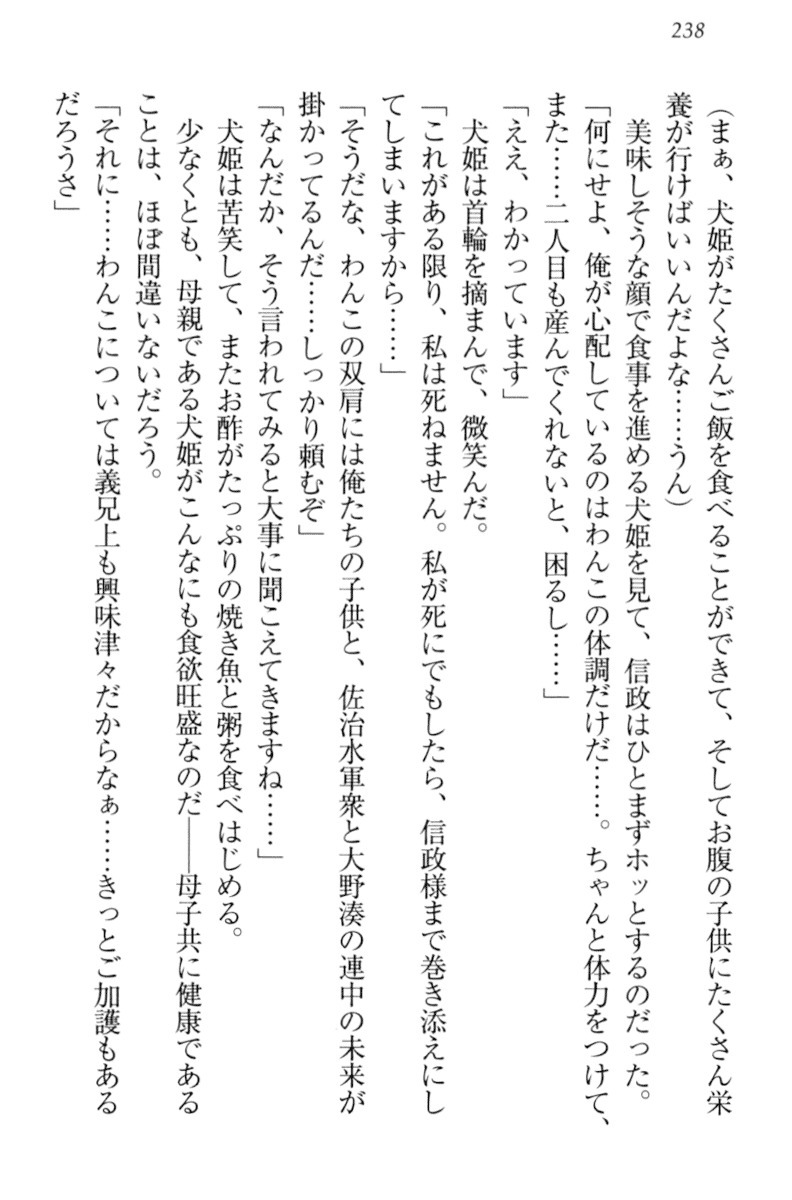 238
(まぁ、犬姫がたくさんご飯を食べることができて、そしてお腹の子供にたくさん栄
養が行けばいいんだよな……うん)
　美味しそうな顔で食事を進める犬姫を見て、信政はひとまずホッとするのだった。
「何にせよ、俺が心配しているのはわんこの体調だけだ……。ちゃんと体力をつけて、
また……二人目も産んでくれないと、困るし……」
「ええ、わかっています」
　犬姫は首輪を摘まんで、微笑んだ。
「これがある限り、私は死ねません。私が死にでもしたら、信政様まで巻き添えにし
てしまいますから……」
「そうだな、わんこの双肩には俺たちの子供と、佐治水軍衆と大野湊の連中の未来が
掛かってるんだ……しっかり頼むぞ」
「なんだか、そう言われてみると大事に聞こえてきますね……」
　犬姫は苦笑して、またお酢がたっぷりの焼き魚と粥を食べはじめる。
　少なくとも、母親である犬姫がこんなにも食欲旺盛なのだ――母子共に健康である
ことは、ほぼ間違いないだろう。
「それに……わんこについては義兄上も興味津々だからなぁ……きっとご加護もある
だろうさ」